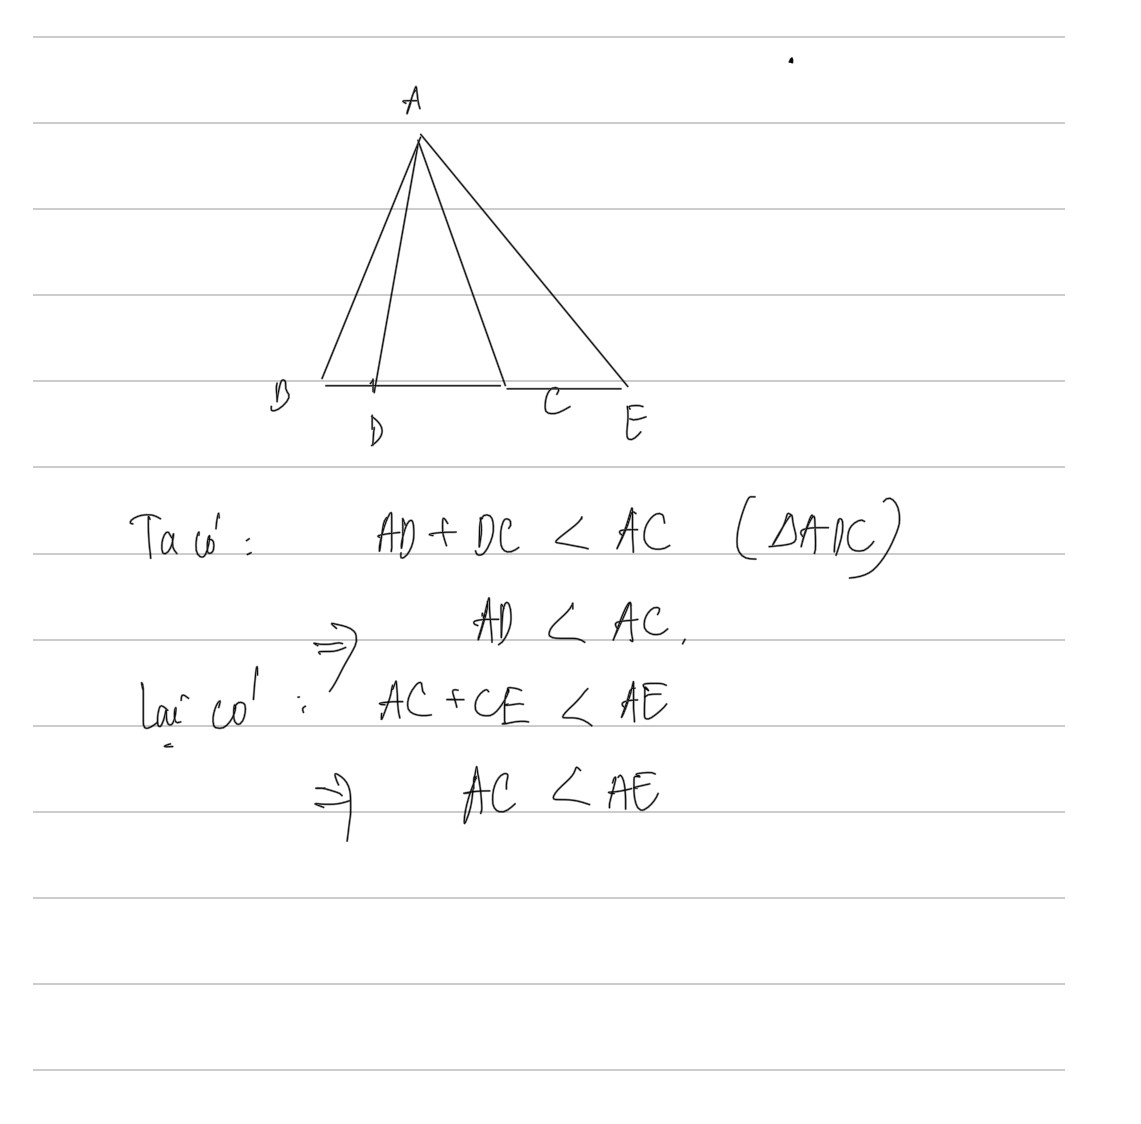 A
B
D
C
E
Ta có : AD + DC < AC (ΔADC)
⇒ AD < AC.
Lại có : AC + CE < AE
⇒ AC < AE